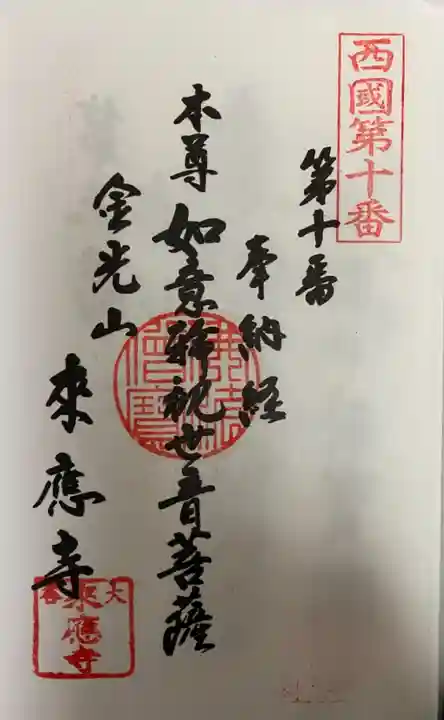 西國第十番
第十番
奉納経
本尊 如意輪観世音菩薩
金光山
來應寺
佛法僧寳
來應寺